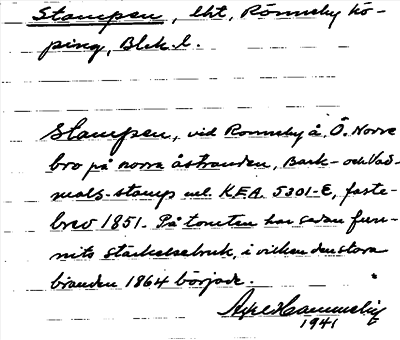 Stampen, lht, Ronneby kö-
ping, Blek. l.
Stampen, vid Ronneby å, Ö. Norre
bro på norra åstranden, Bark- och Vad-
mals-stamp enl. K.F.A. 5301-E, faste-
brev 1851. På tomten har sedan fun-
nits stärkelsebruk, i vilken den stora
branden 1864 började.
1941